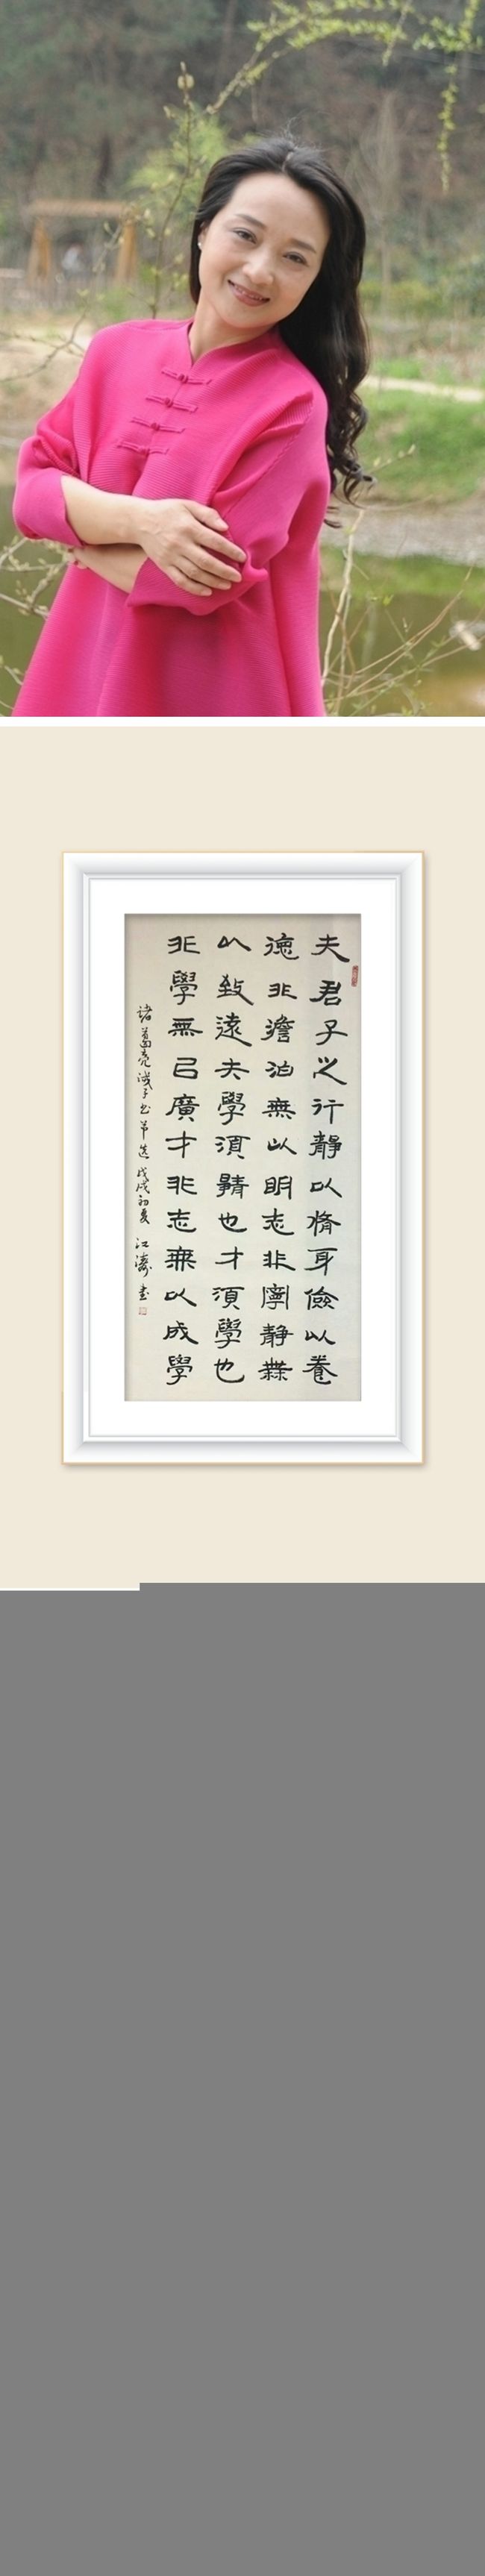 夫君子之行靜以脩身儉以養
德非澹泊無以眀志非寧靜無
以致遠夫學須靜也才須學也
非學無㠯廣才非志無以成學
諸葛亮诫子书节选 戊戌初夏 江濤書